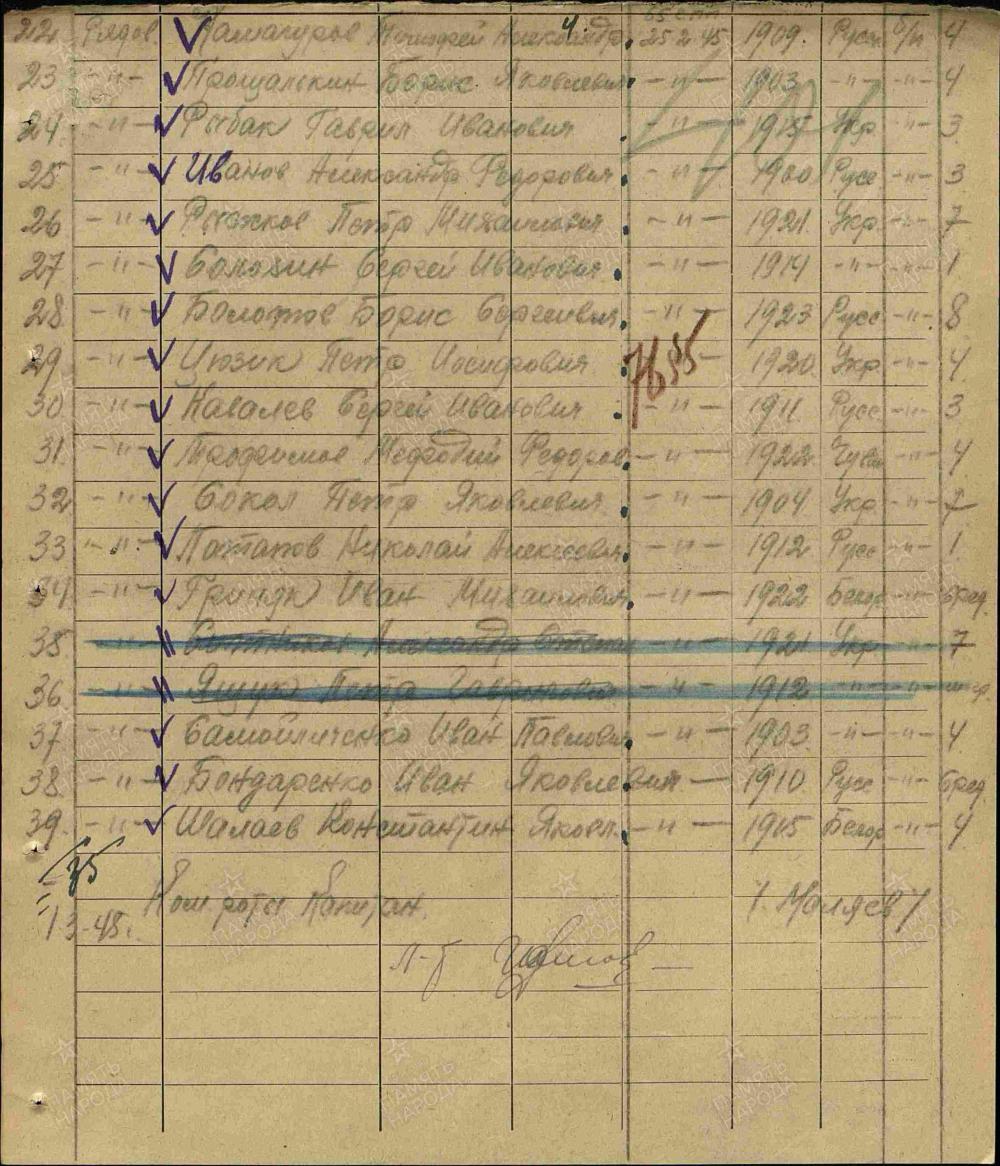 22. Рядов. Тимофей Александр. 25 2 45 1909. Русс б/п 4
23 -"- Прощалыкин Борис Яковлевич -"- 1903 -"- -"- 4
24. -"- Рыбак Гаврил Иванович -"- 1915 Укр -"- 3
25 -"- Иванов Александр Федорович -"- 1900 Русс -"- 3
26 -"- Рыжков Петр Михайлович -"- 1921. Укр. -"- 7
27 -"- Сергей Иванович -"- 1914 -"- -"- 1
28 -"- Болотов Борис Сергеевич -"- 1923 Русс -"- 8
29 -"- Цюзик Петр Иосифович 7655 -"- 1920 Укр. -"- 4
30 -"- Ковалев Сергей Иванович -"- 1911. Русс -"- 3
31. -"- Трофимов Мефодий Федоров -"- 1922 Чуваш -"- 4
32 -"- Сокол Петр Яковлевич -"- 1904 Укр. -"- 7
33 -"- Потапов Николай Алексеевич -"- 1912 Русс -"- 1
34. -"- Гринюк Иван Михайлович -"- 1922 Белор -"- 6ред
35. -"- Александр -"- 1921 Укр. -"- 7
36. -"- Ящук Петр Гаврилович -"- 1912 -"- -"-
37 -"- Самойличенко Иван Павлович -"- 1903 -"- -"- 4
38. -"- Бондаренко Иван Яковлевич -"- 1910 Русс -"- 6ред
39. -"- Шалаев Константин Яковл. -"- 1915 Белор -"- 4
35
Ком роты Капитан. /. Маляев /
1 3-45.
л-т